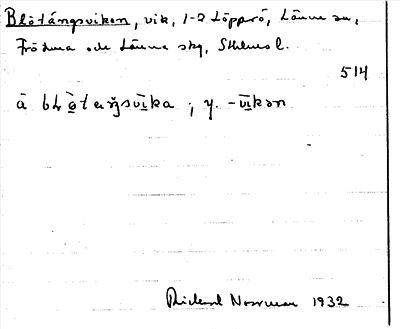 Blötängsviken, vik, 1-2 Löpprö, Länna sn,
Frötuna och Länna skg, Sthlms l.
514
a̅ blötaŋsvika ; y. -vikən
Rickard Norrman 1932